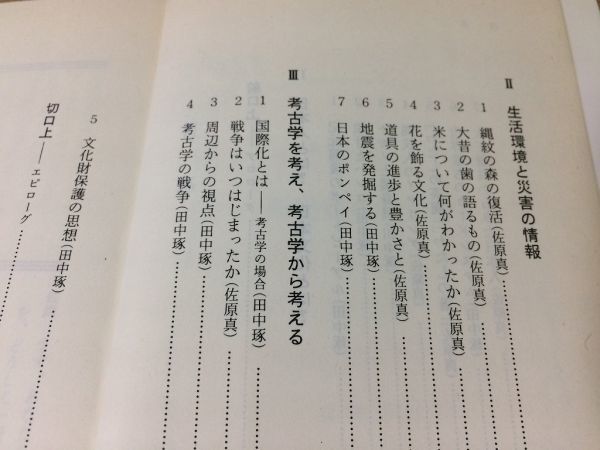 Ⅱ 生活環境と災害の情報
1 縄紋の森の復活(佐原真)
2 大昔の歯の語るもの(佐原真)
3 米について何がわかったか(佐原真)
4 花を飾る文化(佐原真)
5 道具の進歩と豊かさと(佐原真)
6 地震を発掘する(田中琢)
7 日本のポンペイ(田中琢)
Ⅲ 考古学を考え、考古学から考える
1 国際化とは――考古学の場合(田中琢)
2 戦争はいつはじまったか(佐原真)
3 周辺からの視点(田中琢)
4 考古学の戦争(田中琢)
5 文化財保護の思想(田中琢)
切口上――エピローグ